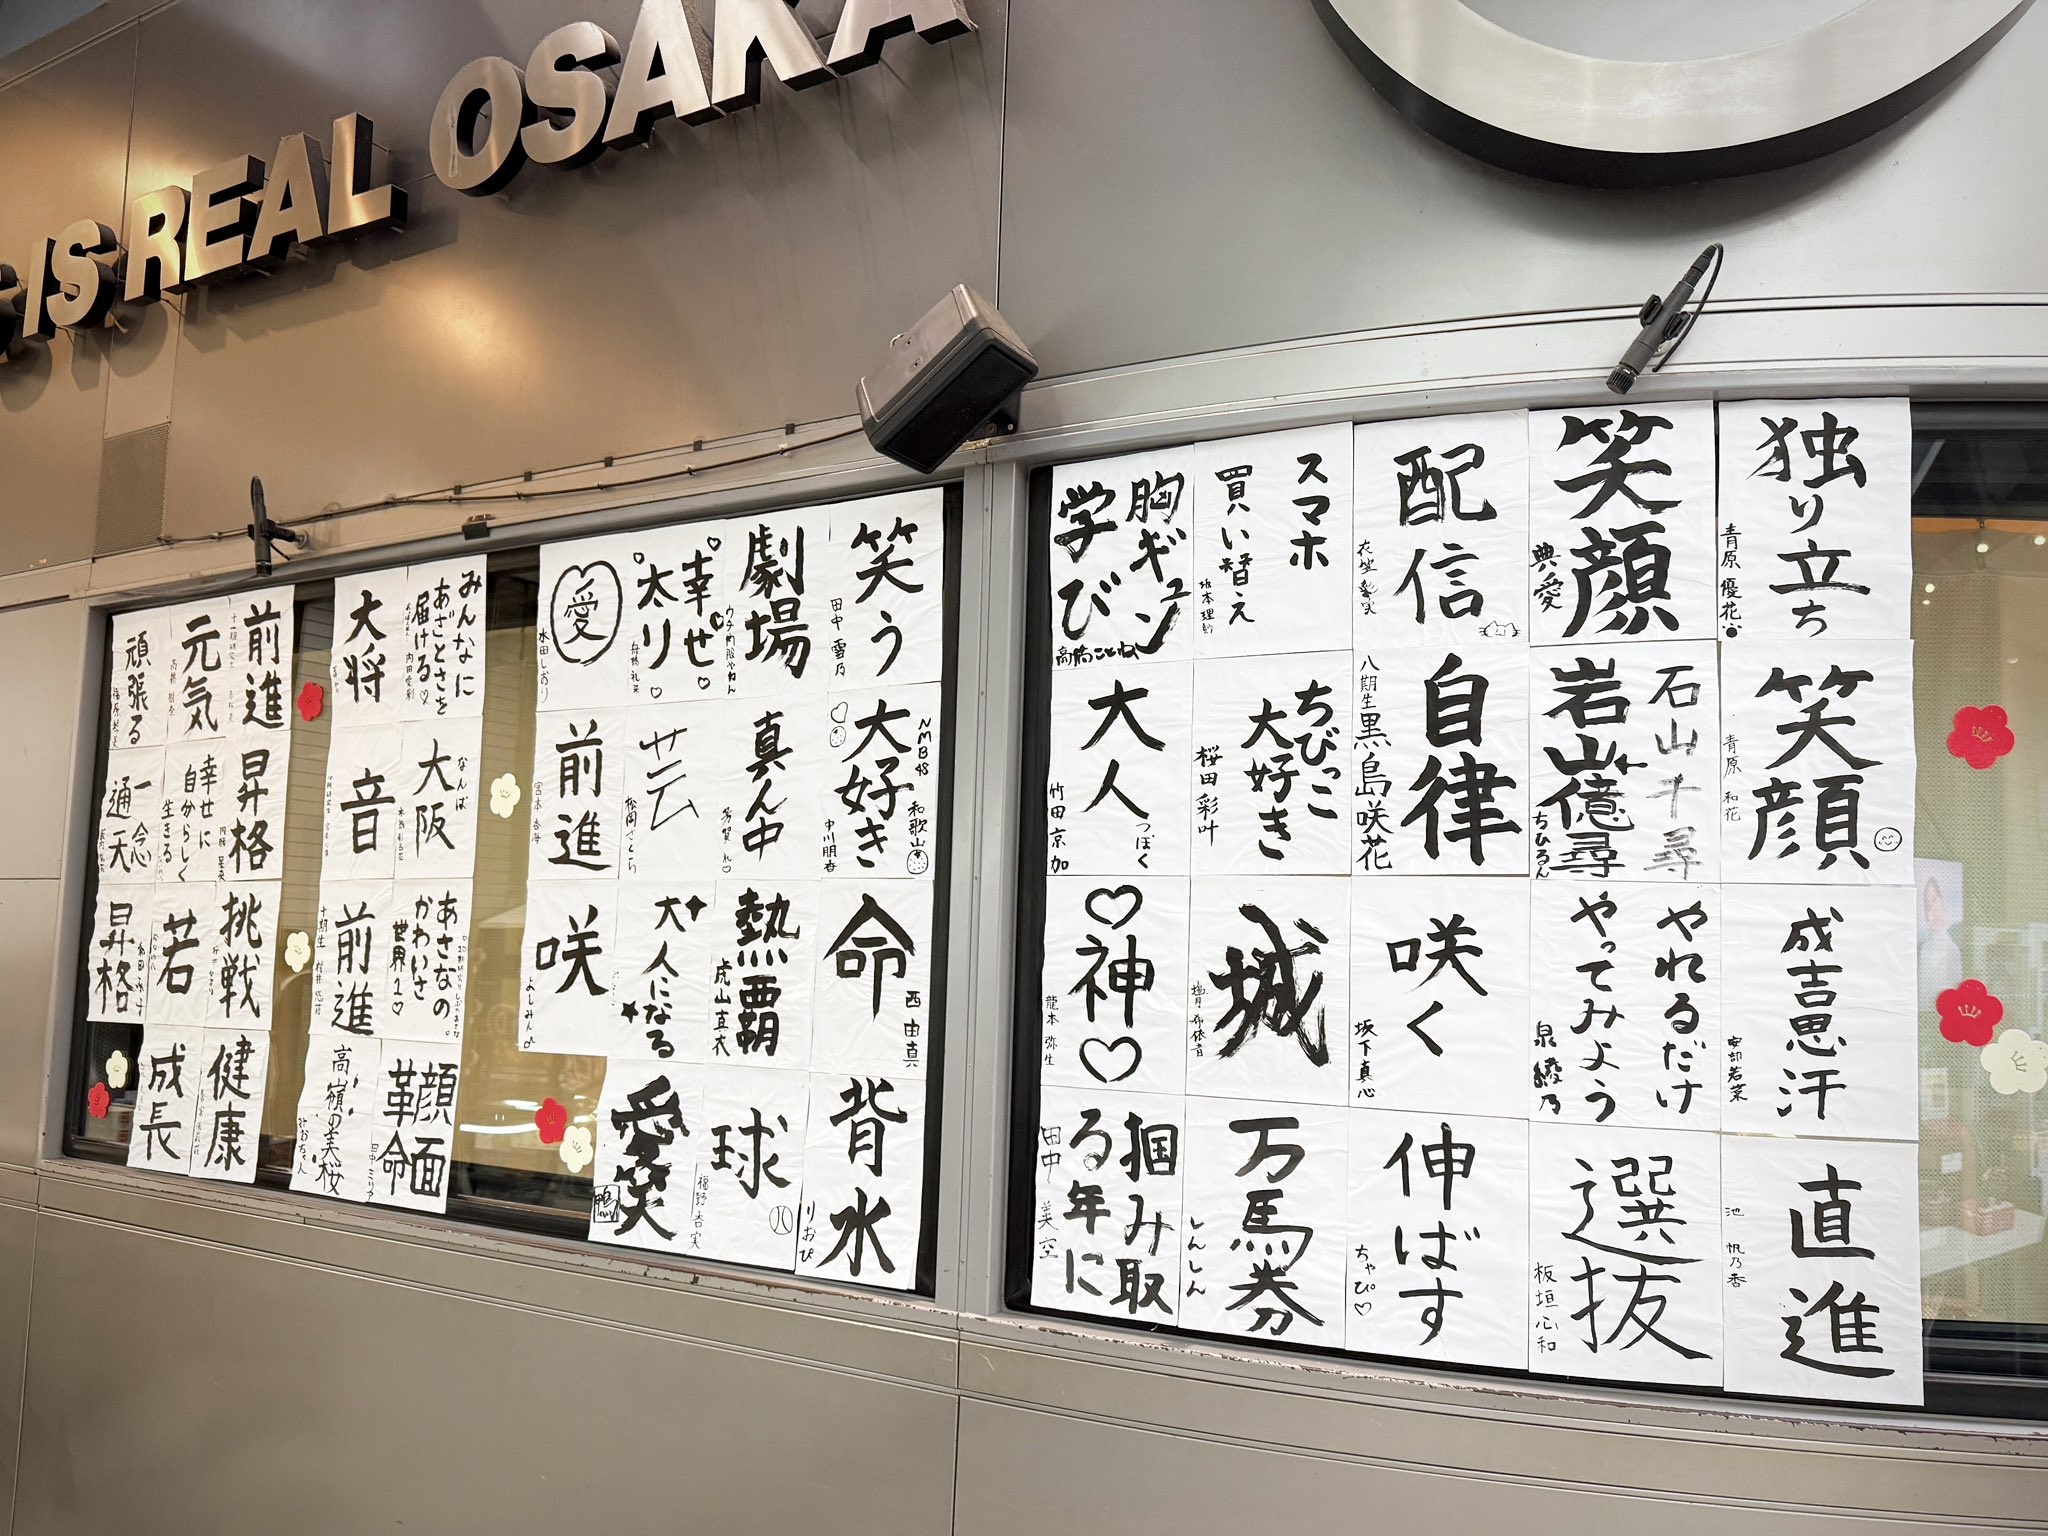 IS REAL OSAKA
独り立ち
青原 優花
笑顔
典愛
配信
スマホ
買い替え
坂本理紗
胸ギュン
学び
高橋ことね
笑顔
青原 和花
石山千尋
岩山億尋
ちひろん
自律
八期生 黒島咲花
ちびっこ
大好き
桜田 彩叶
大人
つぼく
竹田京加
成吉思汗
安部若菜
やれるだけ
やってみよう
泉 綾乃
咲く
坂下真心
城
塩月希依音
♡神♡
龍本 弥生
直進
池 帆乃香
選抜
板垣心和
伸ばす
ちゃぴ♡
万馬券
しんしん
掴み取
る年に
田中 美空
笑う
田中 雪乃
劇場
幸せ♡
太り♡
愛
水田しおり
NMB48
大好き
和歌山
中川朋香
真ん中
芸
松岡さとち
前進
宮本 杏海
命
西 由真
熱覇
虎山真衣
大人になる
咲
よしみん
背水
りおぴ
球
福野杏実
愛笑
鴨
みんなに
あざとさを
届ける
大将
なんば
大阪
音
あさなの
かわいさ
世界1♡
前進
十期生 村井
顔面
革命
田中ミリア
高嶺の美桜
みおちゃん
前進
元気
頑張る
昇格
幸せに
自分らしく
生きる
一念
通天
挑戦
若
昇格
健康
成長